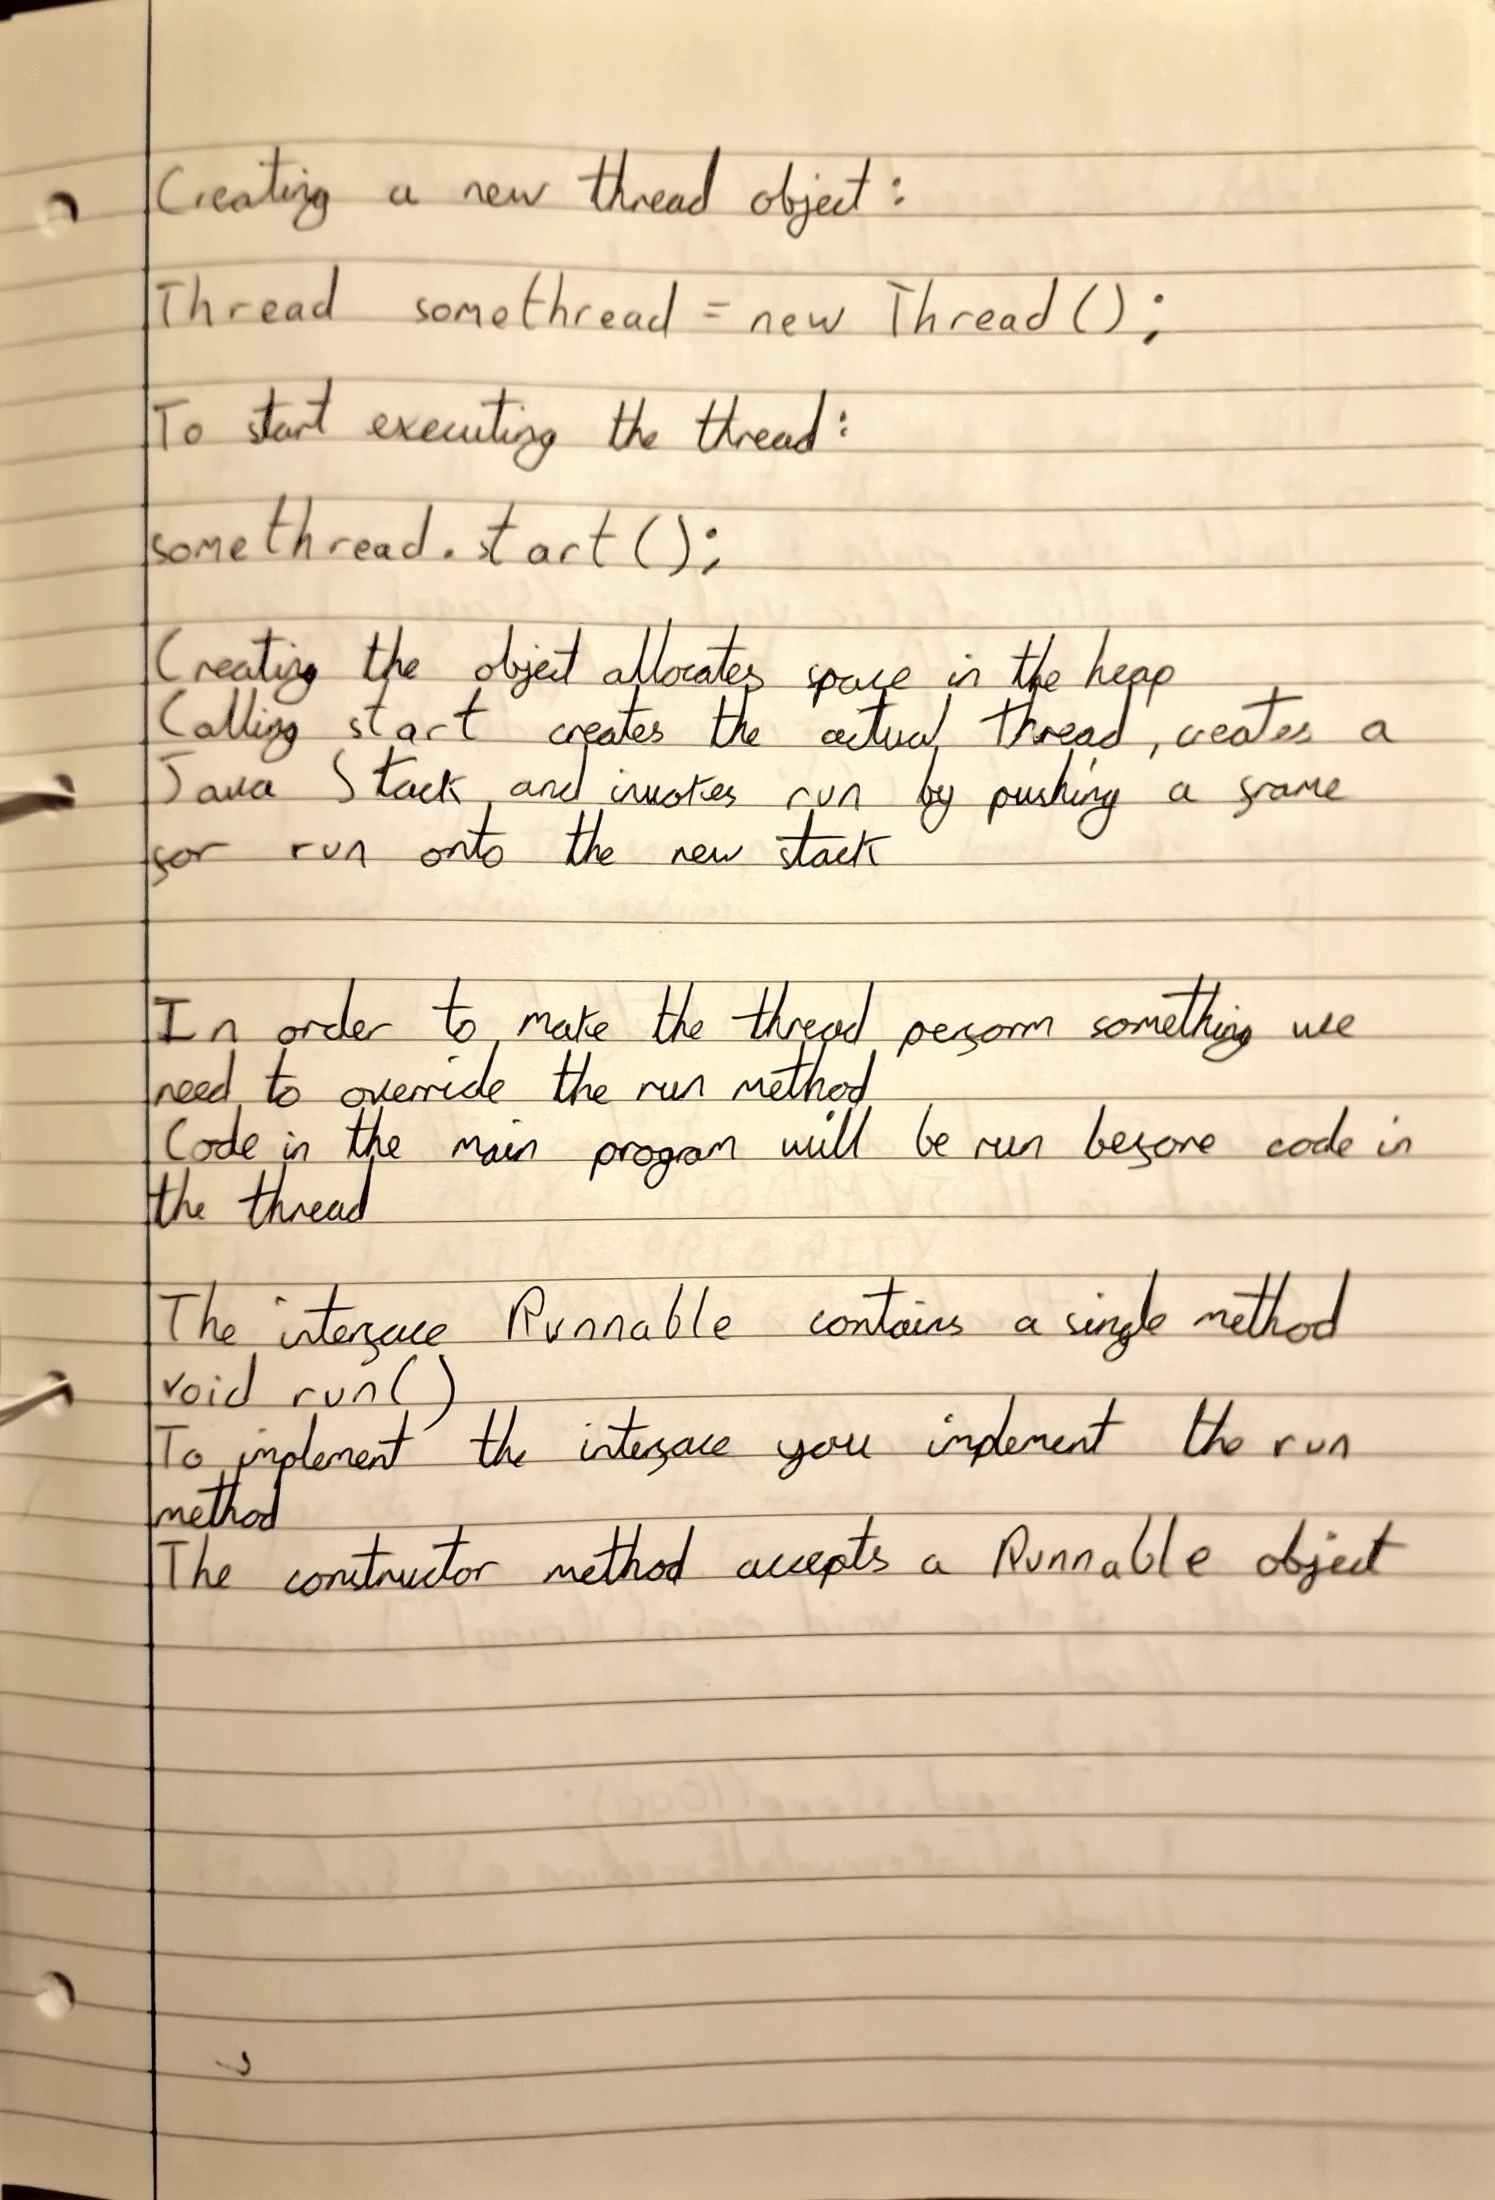 Creating a new thread object:
Thread somethread = new Thread();
To start executing the thread:
somethread.start();
Creating the object allocates space in the heap
Calling start creates the actual thread, creates a
Java Stack, and invokes run by pushing a frame
for run onto the new stack
In order to make the thread perform something we
need to override the run method
Code in the main program will be run before code in
the thread
The interface Runnable contains a single method
void run()
To implement the interface you implement the run
method
The constructor method accepts a Runnable object